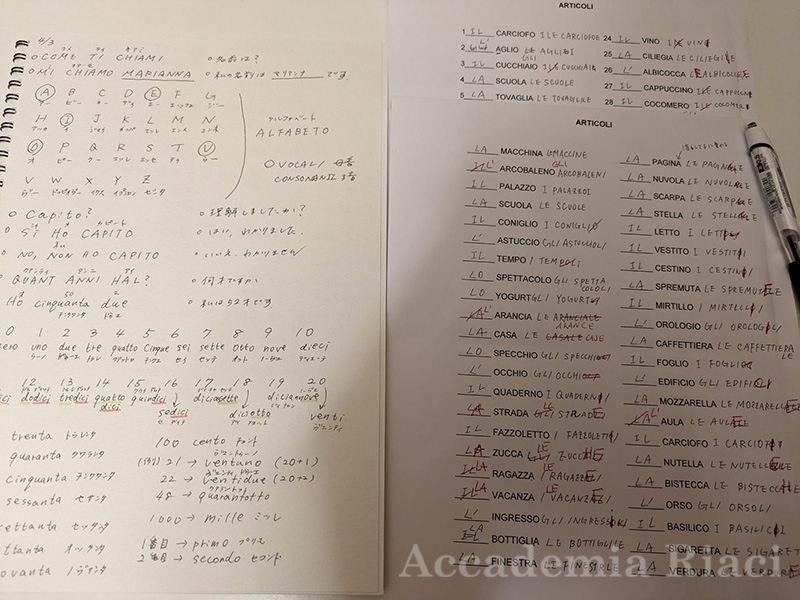 4/3
○COME TI CHIAMI
○名前は?
○MI CHIAMO MARIANNA
○私の名前は マリアンナ です。
A B C D E F G
H I J K L M N
O P Q R S T U
V W X Y Z
アルファベート
ALFABETO
○VOCALI 母音
CONSONANTI 子音
○ Capito?
○理解しましたか?
○ SÌ HO CAPITO
○はい、わかりました。
○ NO, NON HO CAPITO
○いいえ、わかりません
○ QUANTI ANNI HAI?
○何才ですか
Ho cinquanta due
○私は52才です。
0 1 2 3 4 5 6 7 8 9 10
uno due tre quatto cinque sei sette otto nove dieci
12 13 14 15 16 17 18 19 20
dodici tredici quatto dici quindici sedici diciasette diciotto dicianove venti
trenta トレンタ
100 cento チェント
quaranta クワランタ
21 → ventuno (20+1)
cinquanta チンクワンタ
22 → ventidue (20+2)
sessanta セサンタ
48 → quarantotto
settanta セッタンタ
1000 → mille ミッレ
ttanta オッタンタ
1番目 → primo プリモ
ovanta ノヴァンタ
2番目 → secondo セコンド
ARTICOLI
1 IL CARCIOFO I
2 L' AGLIO GLI
3 IL CUCCHIAIO I
4 LA SCUOLA LE SCUOLE
5 LA TOVAGLIA LE
24 IL VINO I VINI
25 LA CILIEGIA LE CILIEGIE
26 L' ALBICOCCA LE ALBICOCCHE
27 IL CAPPUCCINO I CAPPUCCINI
28 IL COCOMERO I COCOMERI
ARTICOLI
LA MACCHINA LE MACCINE
L' ARCOBALENO GLI ARCOBALENI
IL PALAZZO I PALAZZI
LA SCUOLA LE SCUOLE
IL CONIGLIO I CONIGLI
L' ASTUCCIO GLI ASTUCCI
IL TEMPO I TEMPI
LO SPETTACOLO GLI SPETTACOLI
LO YOGURT GLI YOGURT
L' ARANCIA LE ARANCE
LA CASA LE CASE
LO SPECCHIO GLI SPECCHI
L' OCCHIO GLI OCCHI
IL QUADERNO I QUADERNI
LA STRADA LE STRADE
IL FAZZOLETTO I FAZZOLETTI
LA ZUCCA LE ZUCCHE
LA RAGAZZA LE RAGAZZE
LA VACANZA LE VACANZE
L' INGRESSO GLI INGRESSI
LA BOTTIGLIA LE BOTTIGLIE
LA FINESTRA LE FINESTRLE
LA PAGINA LE PAGINE
LA NUVOLA LE NUVOLE
LA SCARPA LE SCARPE
LA STELLA LE STELLE
IL LETTO I LETTI
IL VESTITO I VESTITI
IL CESTINO I CESTINI
LA SPREMUTA LE SPREMUTE
IL MIRTILLO I MIRTILLI
L' OROLOGIO GLI OROLOGI
LA CAFFETTIERA LE CAFFETTIERE
IL FOGLIO I FOGLI
L' EDIFICIO GLI EDIFICI
LA MOZZARELLA LE MOZZARELLE
L' AULA LE AULE
IL CARCIOFO I CARCIOFI
LA NUTELLA LE NUTELLE
LA BISTECCA LE BISTECCHE
L' ORSO GLI ORSI
IL BASILICO I BASILICI
LA SIGARETTA LE SIGARET
LA VERDURA LE VERDURE
Accademia Riaci